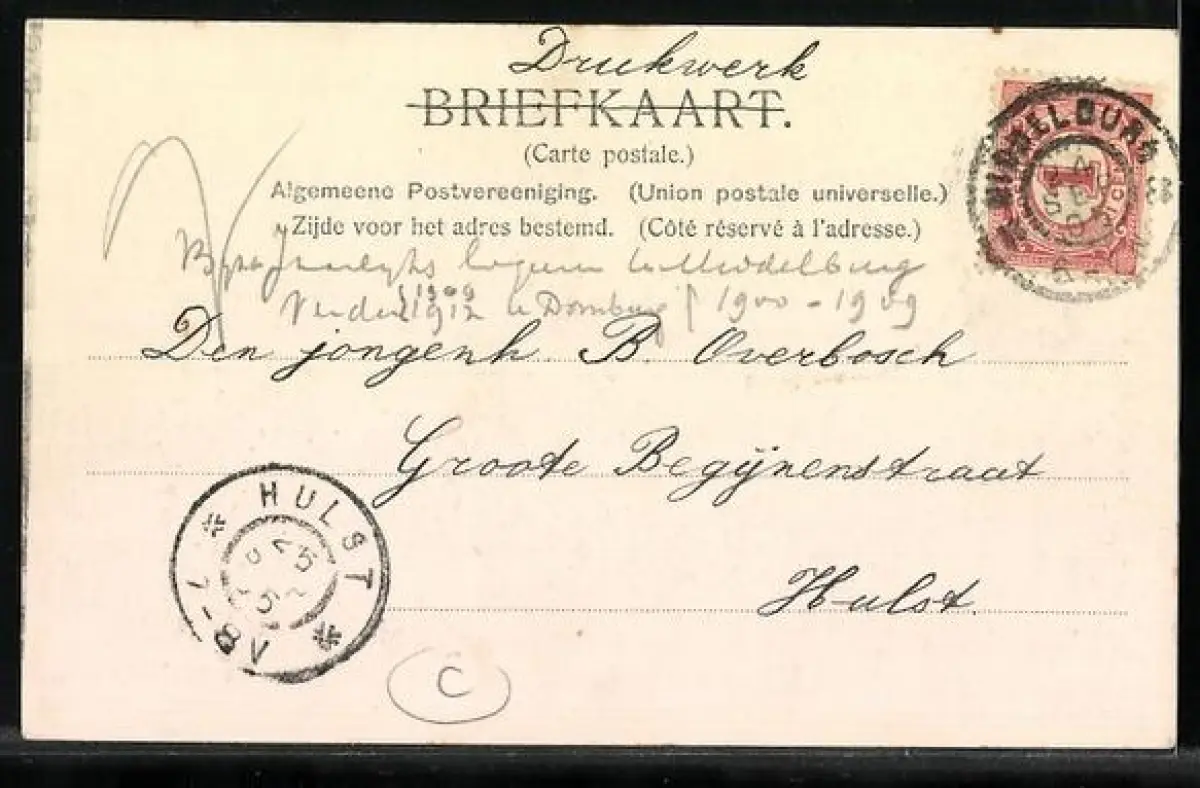 Drukwerk
BRIEFKAART.
(Carte postale.)
Algemeene Postvereeniging. (Union postale universelle.)
Zijde voor het adres bestemd. (Côté réservé à l'adresse.)
Middelburg
1909
1912 te Domburg 1900 - 1909
Den jongenh. B. Overbosch
Groote Begijnenstraat
Hulst.
MIDDELBURG
1
HULST
7-8V
C